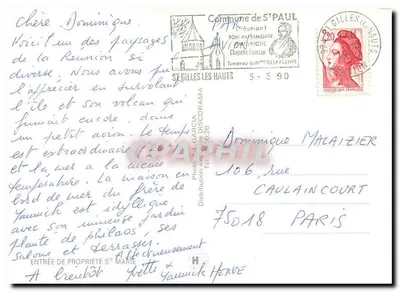 Chère Dominique.
Voici un des paysages
de la Reunion si
diverse. Nous avons pu
l'apprécier en survolant
l'île et son volcan qui
fumait encore, dans
un petit avion. Le temps
est extraordinaire
et la mer a la même
température. La maison en
bord de mer du frère de
Yannick est idyllique
avec son immense jardin
planté de philaos, ses
salons et terrasses.
Affectueusement
A bientôt Yvette &
Yannick HERVE
ENTREE DE PROPRIETE STE MARIE
Commune de St PAUL
SON PATRIMOINE
Chapelle Pointue
Tombeau de Mme
ST. GILLES LES HAUTS 5-5 90
2,20
GILLES LES HAUTS
GARCIA
DECORAMA
Dominique MALAIZIER
106, rue
CAULAINCOURT
75018 PARIS